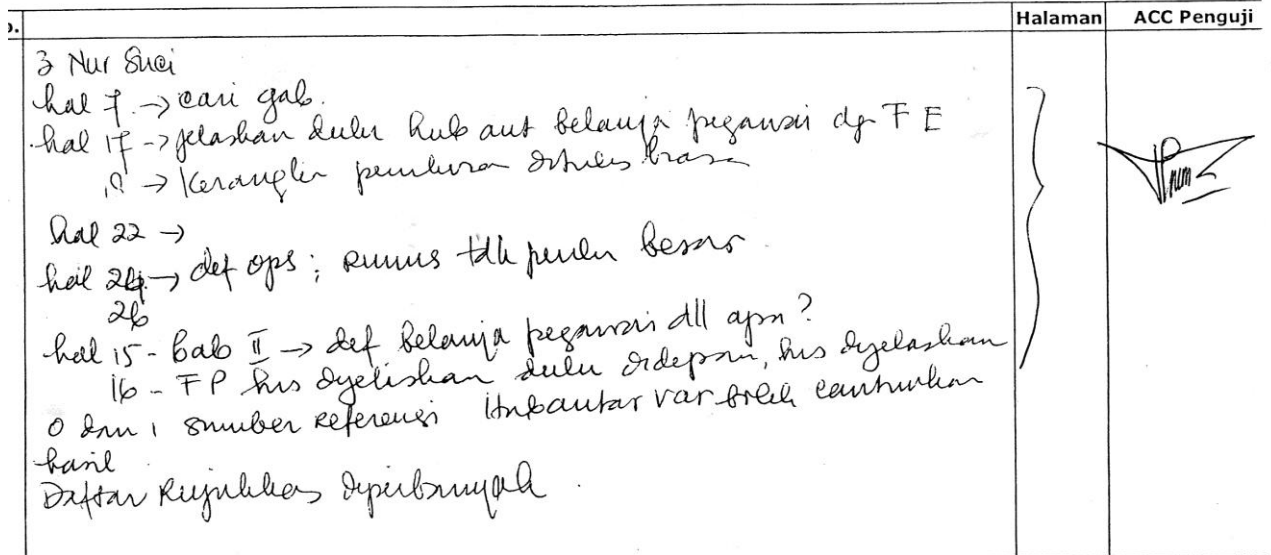 Halaman ACC Penguji
3 Nur Suci
hal 7 → cari gab.
hal 17 → jelaskan dulu hub ant belanja pegawai dg F E
→ kerangka ditulis
hal 22 →
hal 24 → def ops; rumus tdk perlu besar
26
hal 15 - bab II → def belanja pegawai dll apa?
16 - FP hrs dijelaskan dulu didepan, hrs dijelaskan
0 dan 1 sumber referensi antar var boleh cantumkan
hasil
Daftar Rujukan diperbanyak.